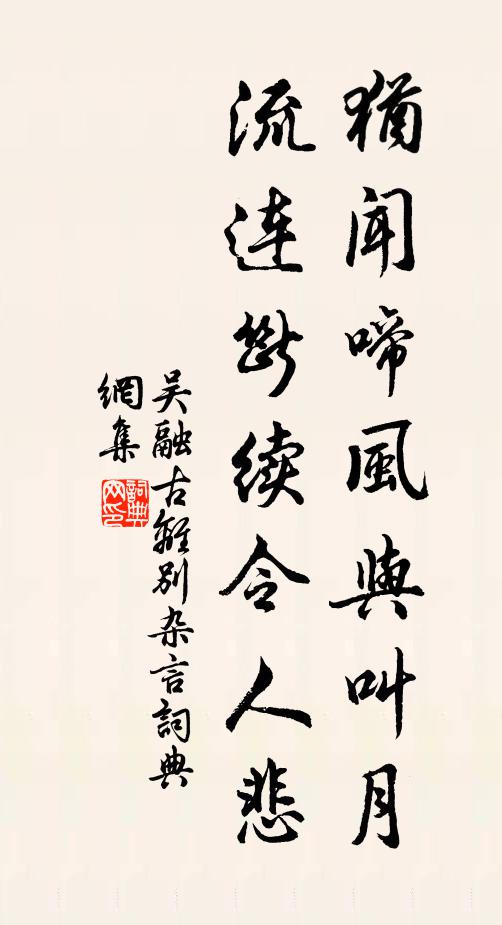 猶聞啼風與叫月
流連斷續令人悲
吴融古離别杂言詞典
網集
詞典
网印